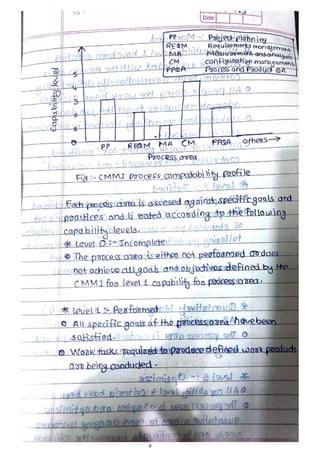 Date
PP Project planning
REQM Requirements management
MA Measurement and analysis
CM configuration management
PPQA Process and Product QA
Capability level
5
4
3
2
1
0
PP REQM MA CM PPQA others
Process area
Fig :- CMMI process compatability profile
Each process area is assessed against specific goals and
practices and is rated according to the following
capability levels.
* Level 0 :- Incomplete
The process area is either not performed or does
not achieve all goals and objectives defined by the
CMMI for level 1 capability for process area.
* Level 1 :- Performed
All specific goals of the process area have been
satisfied.
Work tasks required to produce defined work products
are being conducted.